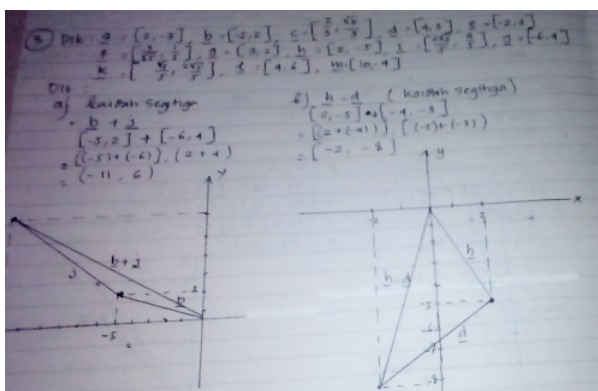 ③ Dik : a = [2, -3], b = [-5, 2], c = [2/3, √5/3], d = [4, 3], e = [-2, 3]
g = [3, 2], h = [2, -5], j = [-6, 4]
l = [4, 6], m = [10, -4]
Dit :
a) kaidah segitiga
b + j
[-5, 2] + [-6, 4]
= [(-5)+(-6)], (2+4)
= (-11, 6)
b) h - d (kaidah segitiga)
[2, -5] + [-4, -3]
= [(2+(-4))], [(-5)+(-3))
= [-2, -8]
y
b + j
j
b
-5
y
x
-2
2
h - d
h
-5
-6
-7
d
-8